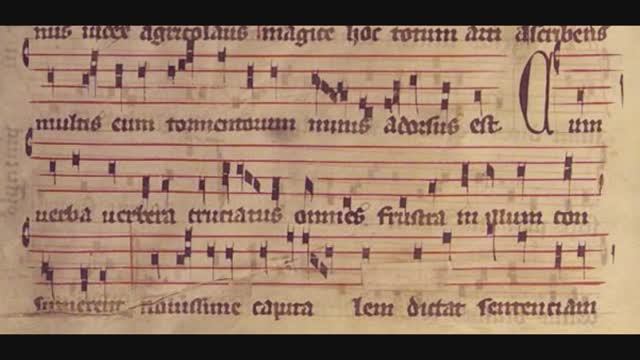 nus iudex agricolaus magice hoc totum arti ascribens
multis eum tormentorum minis adorsus est. Cum
verba verbera cruciatus omnes frustra in ipsum con
sumerent novissime capita lem dictat sentenciam